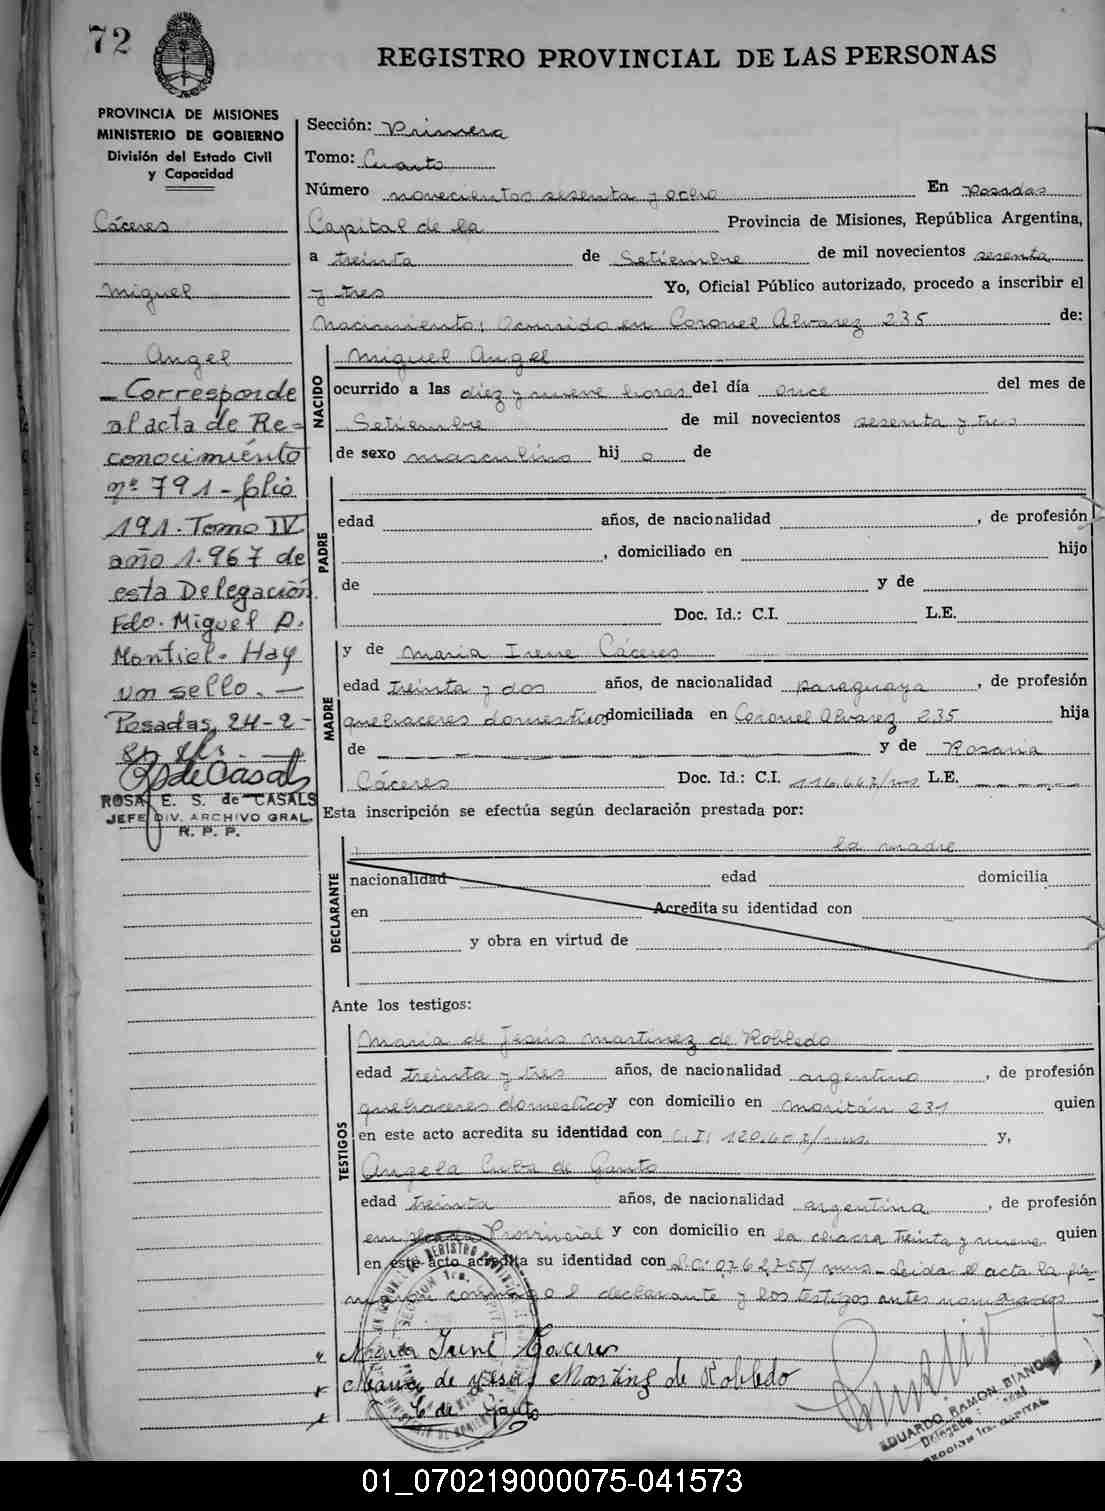 72
REGISTRO PROVINCIAL DE LAS PERSONAS
PROVINCIA DE MISIONES
MINISTERIO DE GOBIERNO
División del Estado Civil
y Capacidad
Cáceres
Miguel
Angel
- Corresponde
al acta de Re=
conocimiento
nº 791 - folio
191. Tomo IV
año 1.967 de
esta Delegación.
Fdo. Miguel D.
Montiel. Hay
un sello. —
Posadas, 24-2-
ROSA E. S. de CASALS
JEFE DIV. ARCHIVO GRAL.
R. P. P.
Sección: Primera
Tomo: Cuarto
Número novecientos sesenta y ocho En Posadas
Capital de la Provincia de Misiones, República Argentina,
a treinta de Setiembre de mil novecientos sesenta
y tres Yo, Oficial Público autorizado, procedo a inscribir el
Nacimiento, ocurrido en Coronel Alvarez 235 de:
NACIDO
Miguel Angel
ocurrido a las diez y nueve horas del día once del mes de
Setiembre de mil novecientos sesenta y tres
de sexo masculino hij o de
PADRE
edad años, de nacionalidad , de profesión
, domiciliado en hijo
de y de
Doc. Id.: C.I. L.E.
MADRE
y de Maria Irene Cáceres
edad treinta y dos años, de nacionalidad paraguaya , de profesión
quehaceres domesticos domiciliada en Coronel Alvarez 235 hija
de — y de Rosaria
Cáceres Doc. Id.: C.I. 116.667/mns L.E.
Esta inscripción se efectúa según declaración prestada por:
DECLARANTE
la madre
nacionalidad edad domicilia
en Acredita su identidad con
y obra en virtud de
Ante los testigos:
TESTIGOS
Maria de Jesús Martinez de Robledo
edad treinta y tres años, de nacionalidad argentino , de profesión
quehaceres domesticos y con domicilio en 231 quien
en este acto acredita su identidad con C.I. 120.607/mns. y,
Angela Cuba de Gauto
edad treinta años, de nacionalidad argentina , de profesión
Provincial y con domicilio en la chacra treinta y nueve quien
en este acto acredita su identidad con L.C. 0.762.755/mns - Leida el acta la fir-
conmigo el declarante y los testigos antes nombrados
Maria Irene Caceres
Maria de Jesus Martinez de Robledo
de Gauto
EDUARDO RAMON BIANCHI
01_070219000075-041573